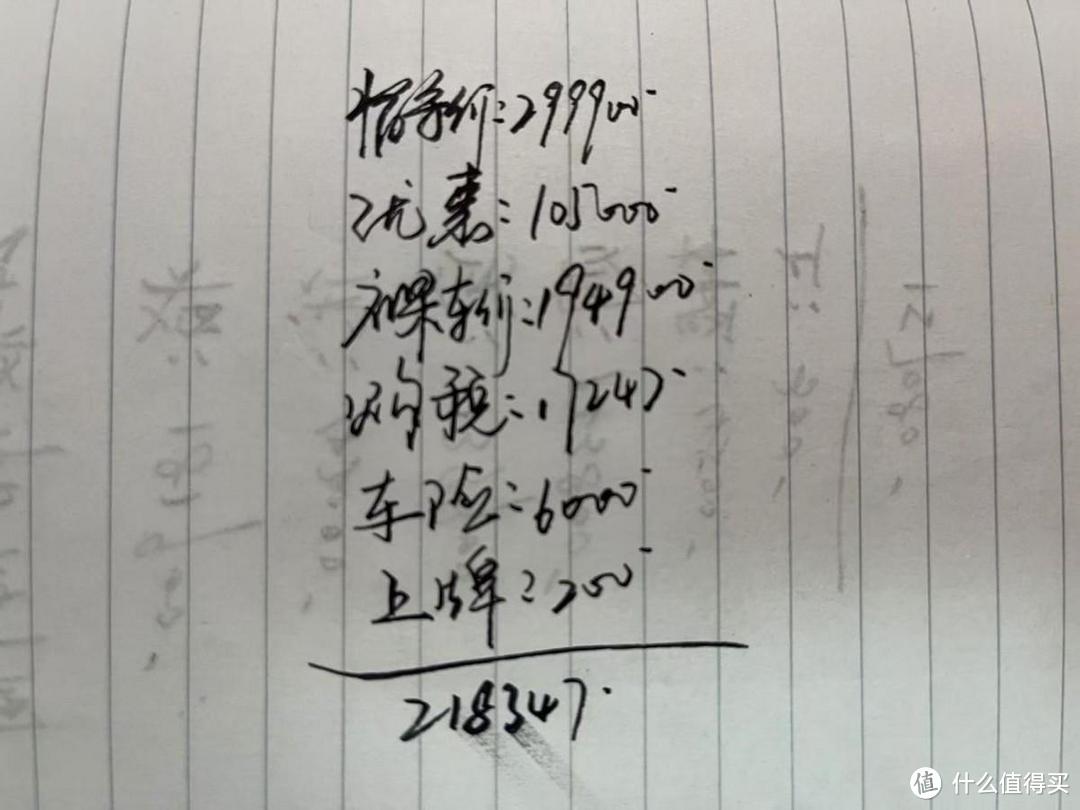 指导价:299900
优惠:105000
裸车价:194900
购税:17247
车险:6000
上牌:200
218347
值 什么值得买